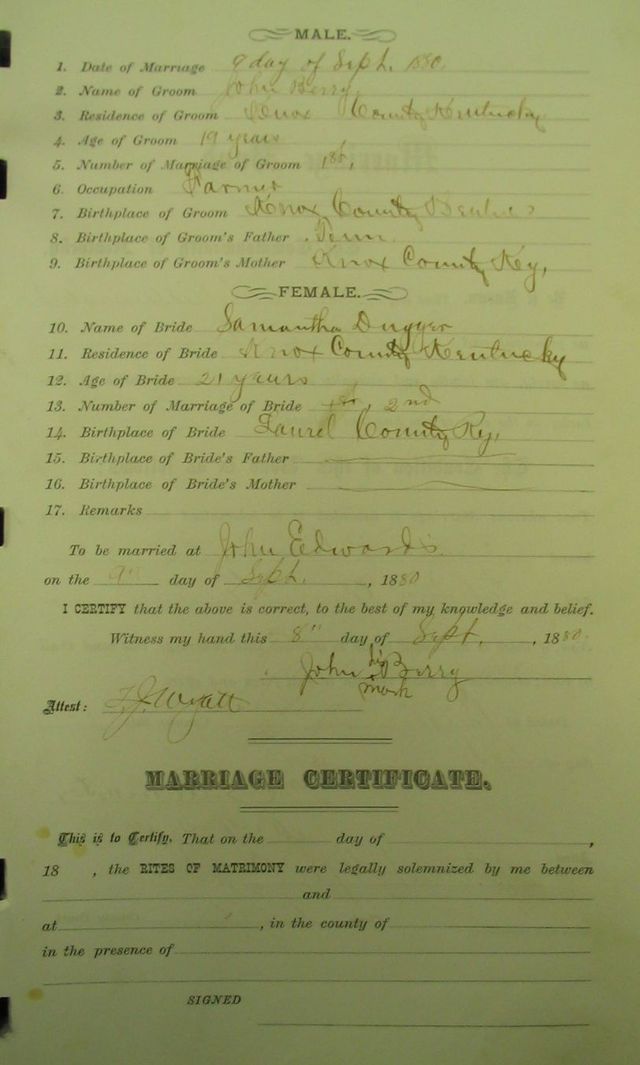 MALE.
1. Date of Marriage 9 day of Sept. 1880.
2. Name of Groom John Berry,
3. Residence of Groom Knox County Kentucky
4. Age of Groom 19 years
5. Number of Marriage of Groom 1st,
6. Occupation Farmer
7. Birthplace of Groom Knox County
8. Birthplace of Groom's Father Tenn.
9. Birthplace of Groom's Mother Knox County Key,
FEMALE.
10. Name of Bride Samantha Dugger
11. Residence of Bride Knox County Kentucky
12. Age of Bride 21 years
13. Number of Marriage of Bride 1st, 2nd
14. Birthplace of Bride Laurel County Ky,
15. Birthplace of Bride's Father
16. Birthplace of Bride's Mother
17. Remarks
To be married at John Edwards
on the 9" day of Sept. , 1880
I CERTIFY that the above is correct, to the best of my knowledge and belief.
Witness my hand this 8" day of Sept. , 1880.
John his Berry
mark
Attest: Wyatt
MARRIAGE CERTIFICATE.
This is to Certify, That on the day of ,
18 , the RITES OF MATRIMONY were legally solemnized by me between
and
at , in the county of
in the presence of
SIGNED